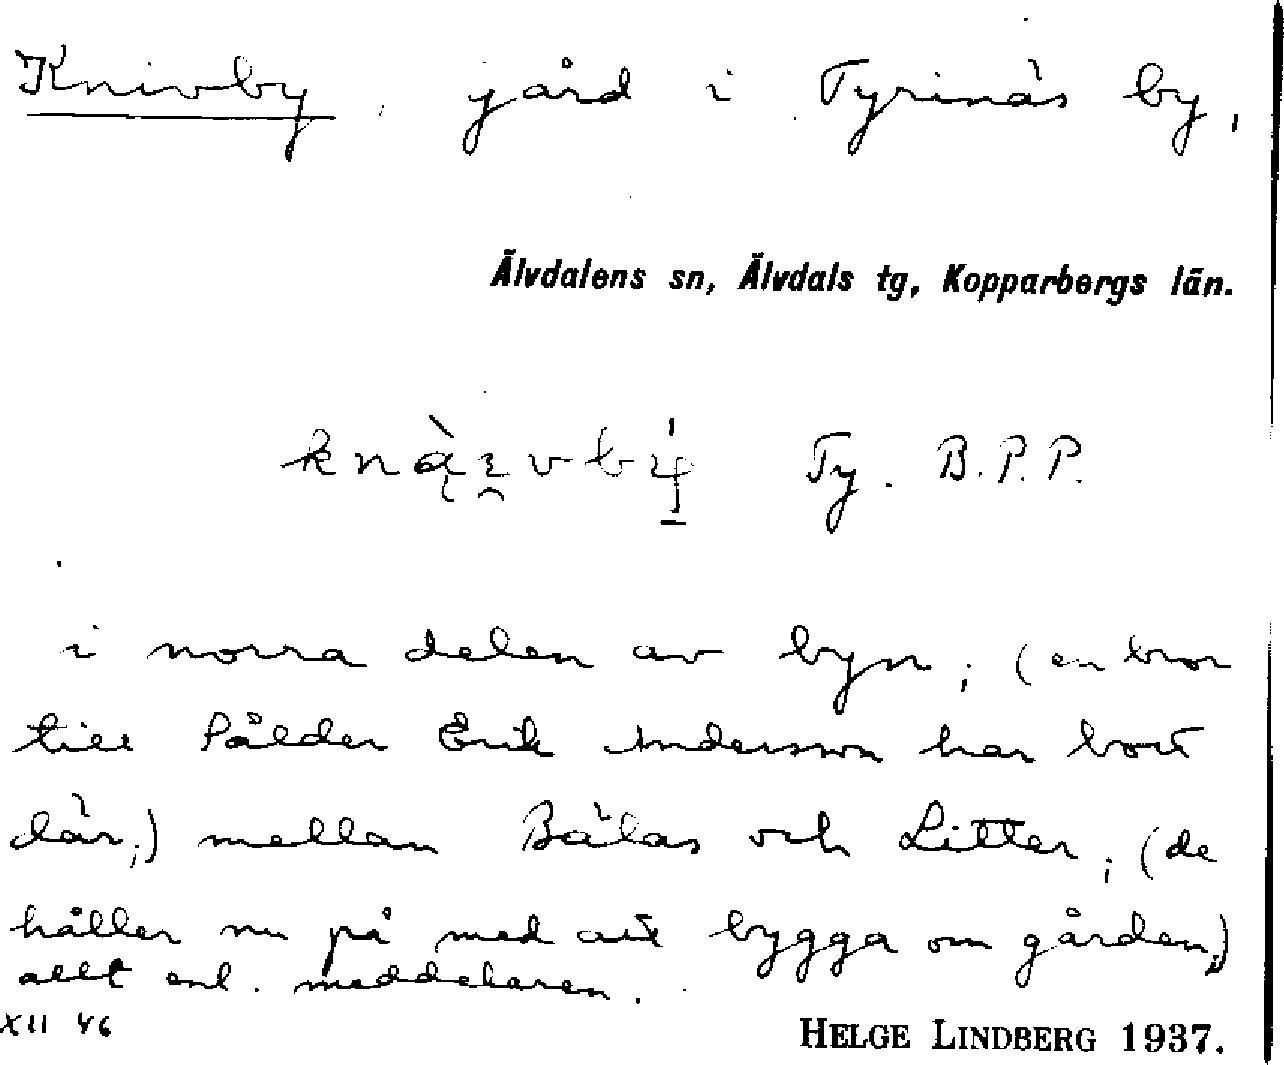 Knivby, gård i Tyrinäs by,
Älvdalens sn, Älvdals tg, Kopparbergs län.
Ty. B.P.P.
i norra delen av byn; (en bror
till Pålder Erik Andersson har bott
där;) mellan Bälas och Litter; (de
håller nu på med att bygga om gården;)
allt enl. meddelaren.
XII 46
HELGE LINDBERG 1937.